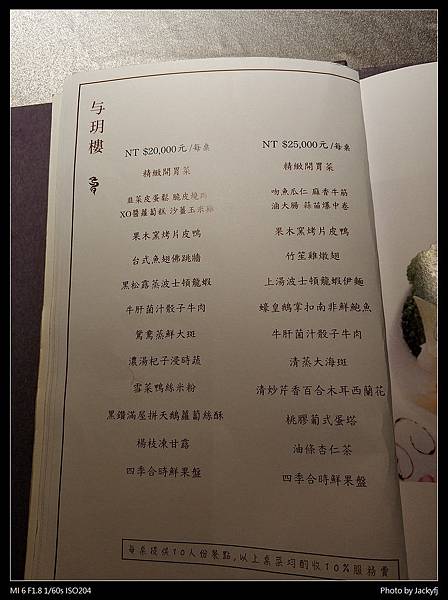 与玥樓
NT $20,000元/每桌
精緻開胃菜
韭菜皮蛋鬆 脆皮燒肉
XO醬蘿蔔糕 沙薑玉米雞
果木窯烤片皮鴨
台式魚翅佛跳牆
黑松露蒸波士頓龍蝦
牛肝菌汁骰子牛肉
鴛鴦蒸鮮大斑
濃湯杞子浸時蔬
雪菜鴨絲米粉
黑鑽滿屋拼天鵝蘿蔔絲酥
楊枝凍甘露
四季合時鮮果盤
NT $25,000元/每桌
精緻開胃菜
吻魚瓜仁 麻香牛筋
滷大腸 蒜苗爆中卷
果木窯烤片皮鴨
竹笙雞燉翅
上湯波士頓龍蝦伊麵
蠔皇鵝掌扣南非鮮鮑魚
牛肝菌汁骰子牛肉
清蒸大海斑
清炒芹香百合木耳西蘭花
桃膠葡式蛋塔
油條杏仁茶
四季合時鮮果盤
每桌提供10人份餐點,以上桌菜均酌收10%服務費
MI 6 F1.8 1/60s ISO204
Photo by Jackyfj